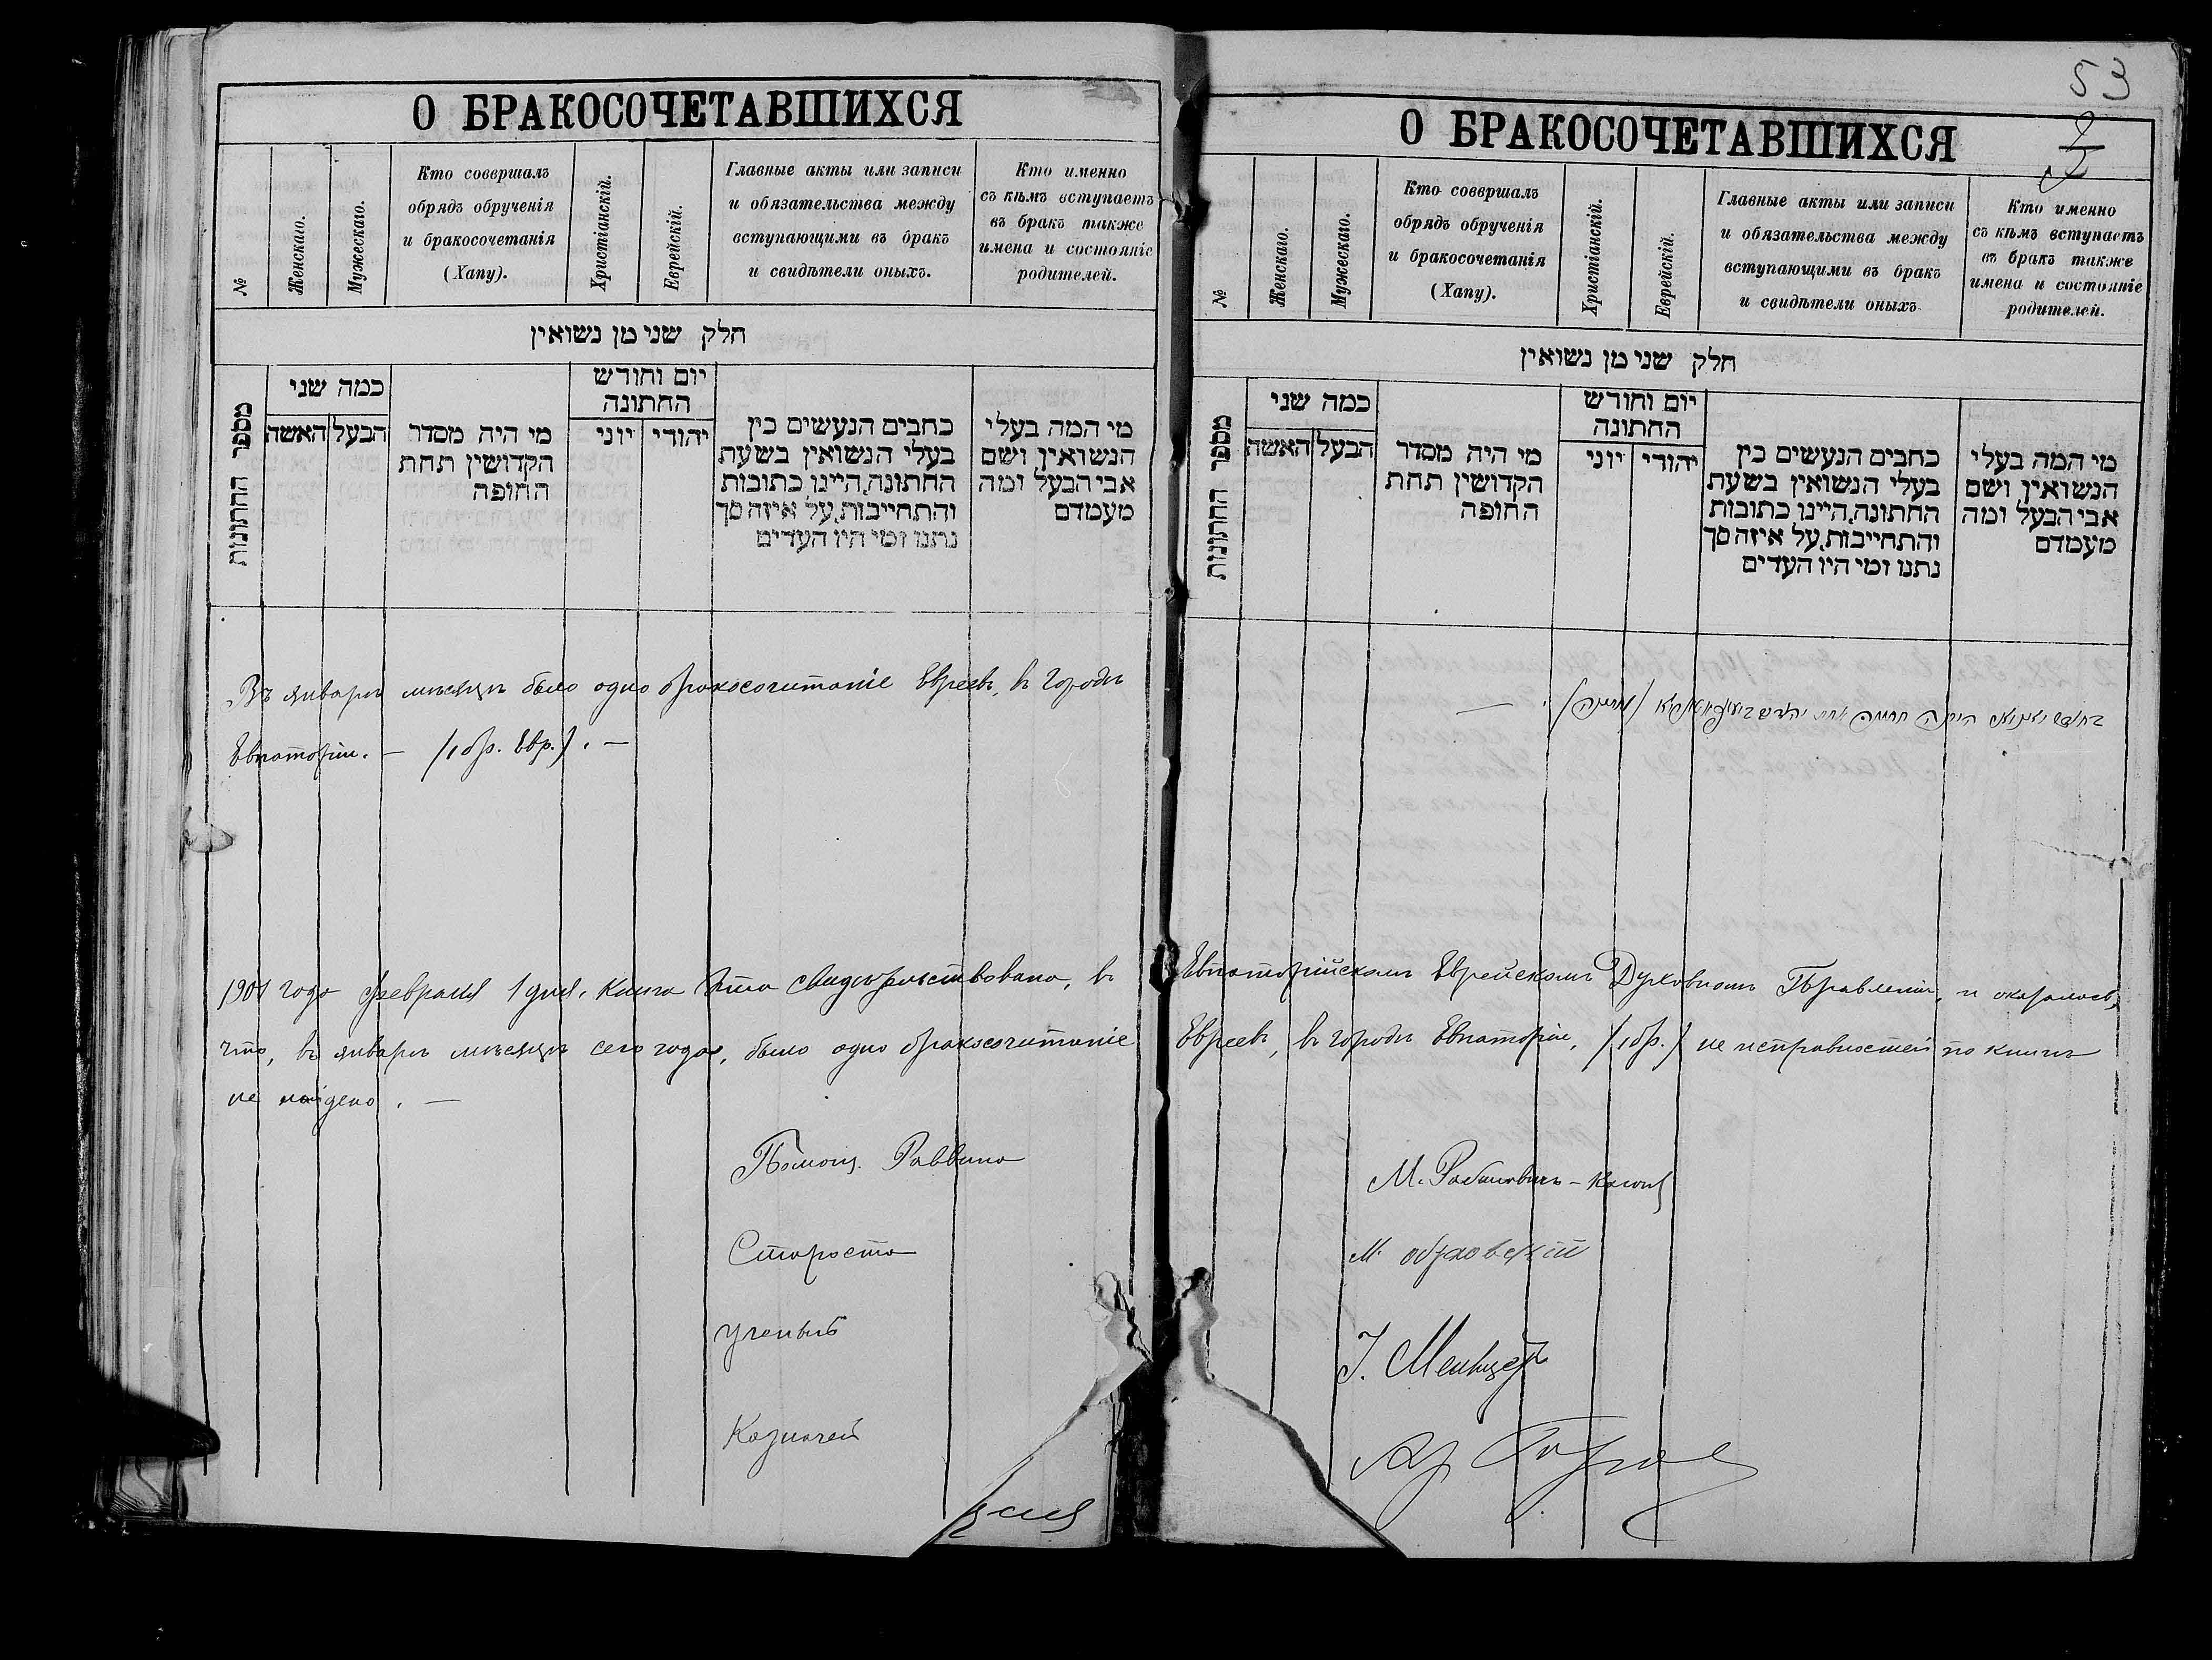 О БРАКОСОЧЕТАВШИХСЯ
№
Женскаго.
Мужескаго.
Кто совершалъ
обрядъ обрученія
и бракосочетанія
(Хапу).
Христіанскій.
Еврейскій.
Главные акты или записи
и обязательства между
вступающими въ бракъ
и свидѣтели оныхъ.
Кто именно
съ кѣмъ вступаетъ
въ бракъ также
имена и состояніе
родителей.
חלק שני מן נשואין
מספר החתונות
כמה שני
האשה
הבעל
מי היה מסדר
הקדושין תחת
החופה
יום וחודש
החתונה
יוני
יהודי
כתבים הנעשים בין
בעלי הנשואין בשעת
החתונה, היינו כתובות
והתחייבות, על איזה סך
נתנו ומי היו העדים
מי המה בעלי
הנשואין ושם
אבי הבעל ומה
מעמדם
Въ январѣ мѣсяцѣ было одно бракосочитаніе Евреевъ, въ городѣ
Евпаторіи. — /1 бр. Евр./. —
1901 года Февраля 1 дня, книга эта свидѣтельствована, въ
что, въ январѣ мѣсяцѣ сего года, было одно бракосочитаніе
не найдено. —
Помощ. Раввина
Староста
Ученый
Казначей
53
2
О БРАКОСОЧЕТАВШИХСЯ
№
Женскаго.
Мужескаго.
Кто совершалъ
обрядъ обрученія
и бракосочетанія
(Хапу).
Христіанскій.
Еврейскій.
Главные акты или записи
и обязательства между
вступающими въ бракъ
и свидѣтели оныхъ.
Кто именно
съ кѣмъ вступаетъ
въ бракъ также
имена и состояніе
родителей.
חלק שני מן נשואין
מספר החתונות
כמה שני
האשה
הבעל
מי היה מסדר
הקדושין תחת
החופה
יום וחודש
החתונה
יוני
יהודי
כתבים הנעשים בין
בעלי הנשואין בשעת
החתונה, היינו כתובות
והתחייבות, על איזה סך
נתנו ומי היו העדים
מי המה בעלי
הנשואין ושם
אבי הבעל ומה
מעמדם
Евпаторійскомъ Еврейскомъ Духовномъ Правленіи, и оказалось,
Евреевъ, въ городѣ Евпаторіи, /1 бр./ не исправностей по книгѣ
М. Рабиновичъ-
М.
І.